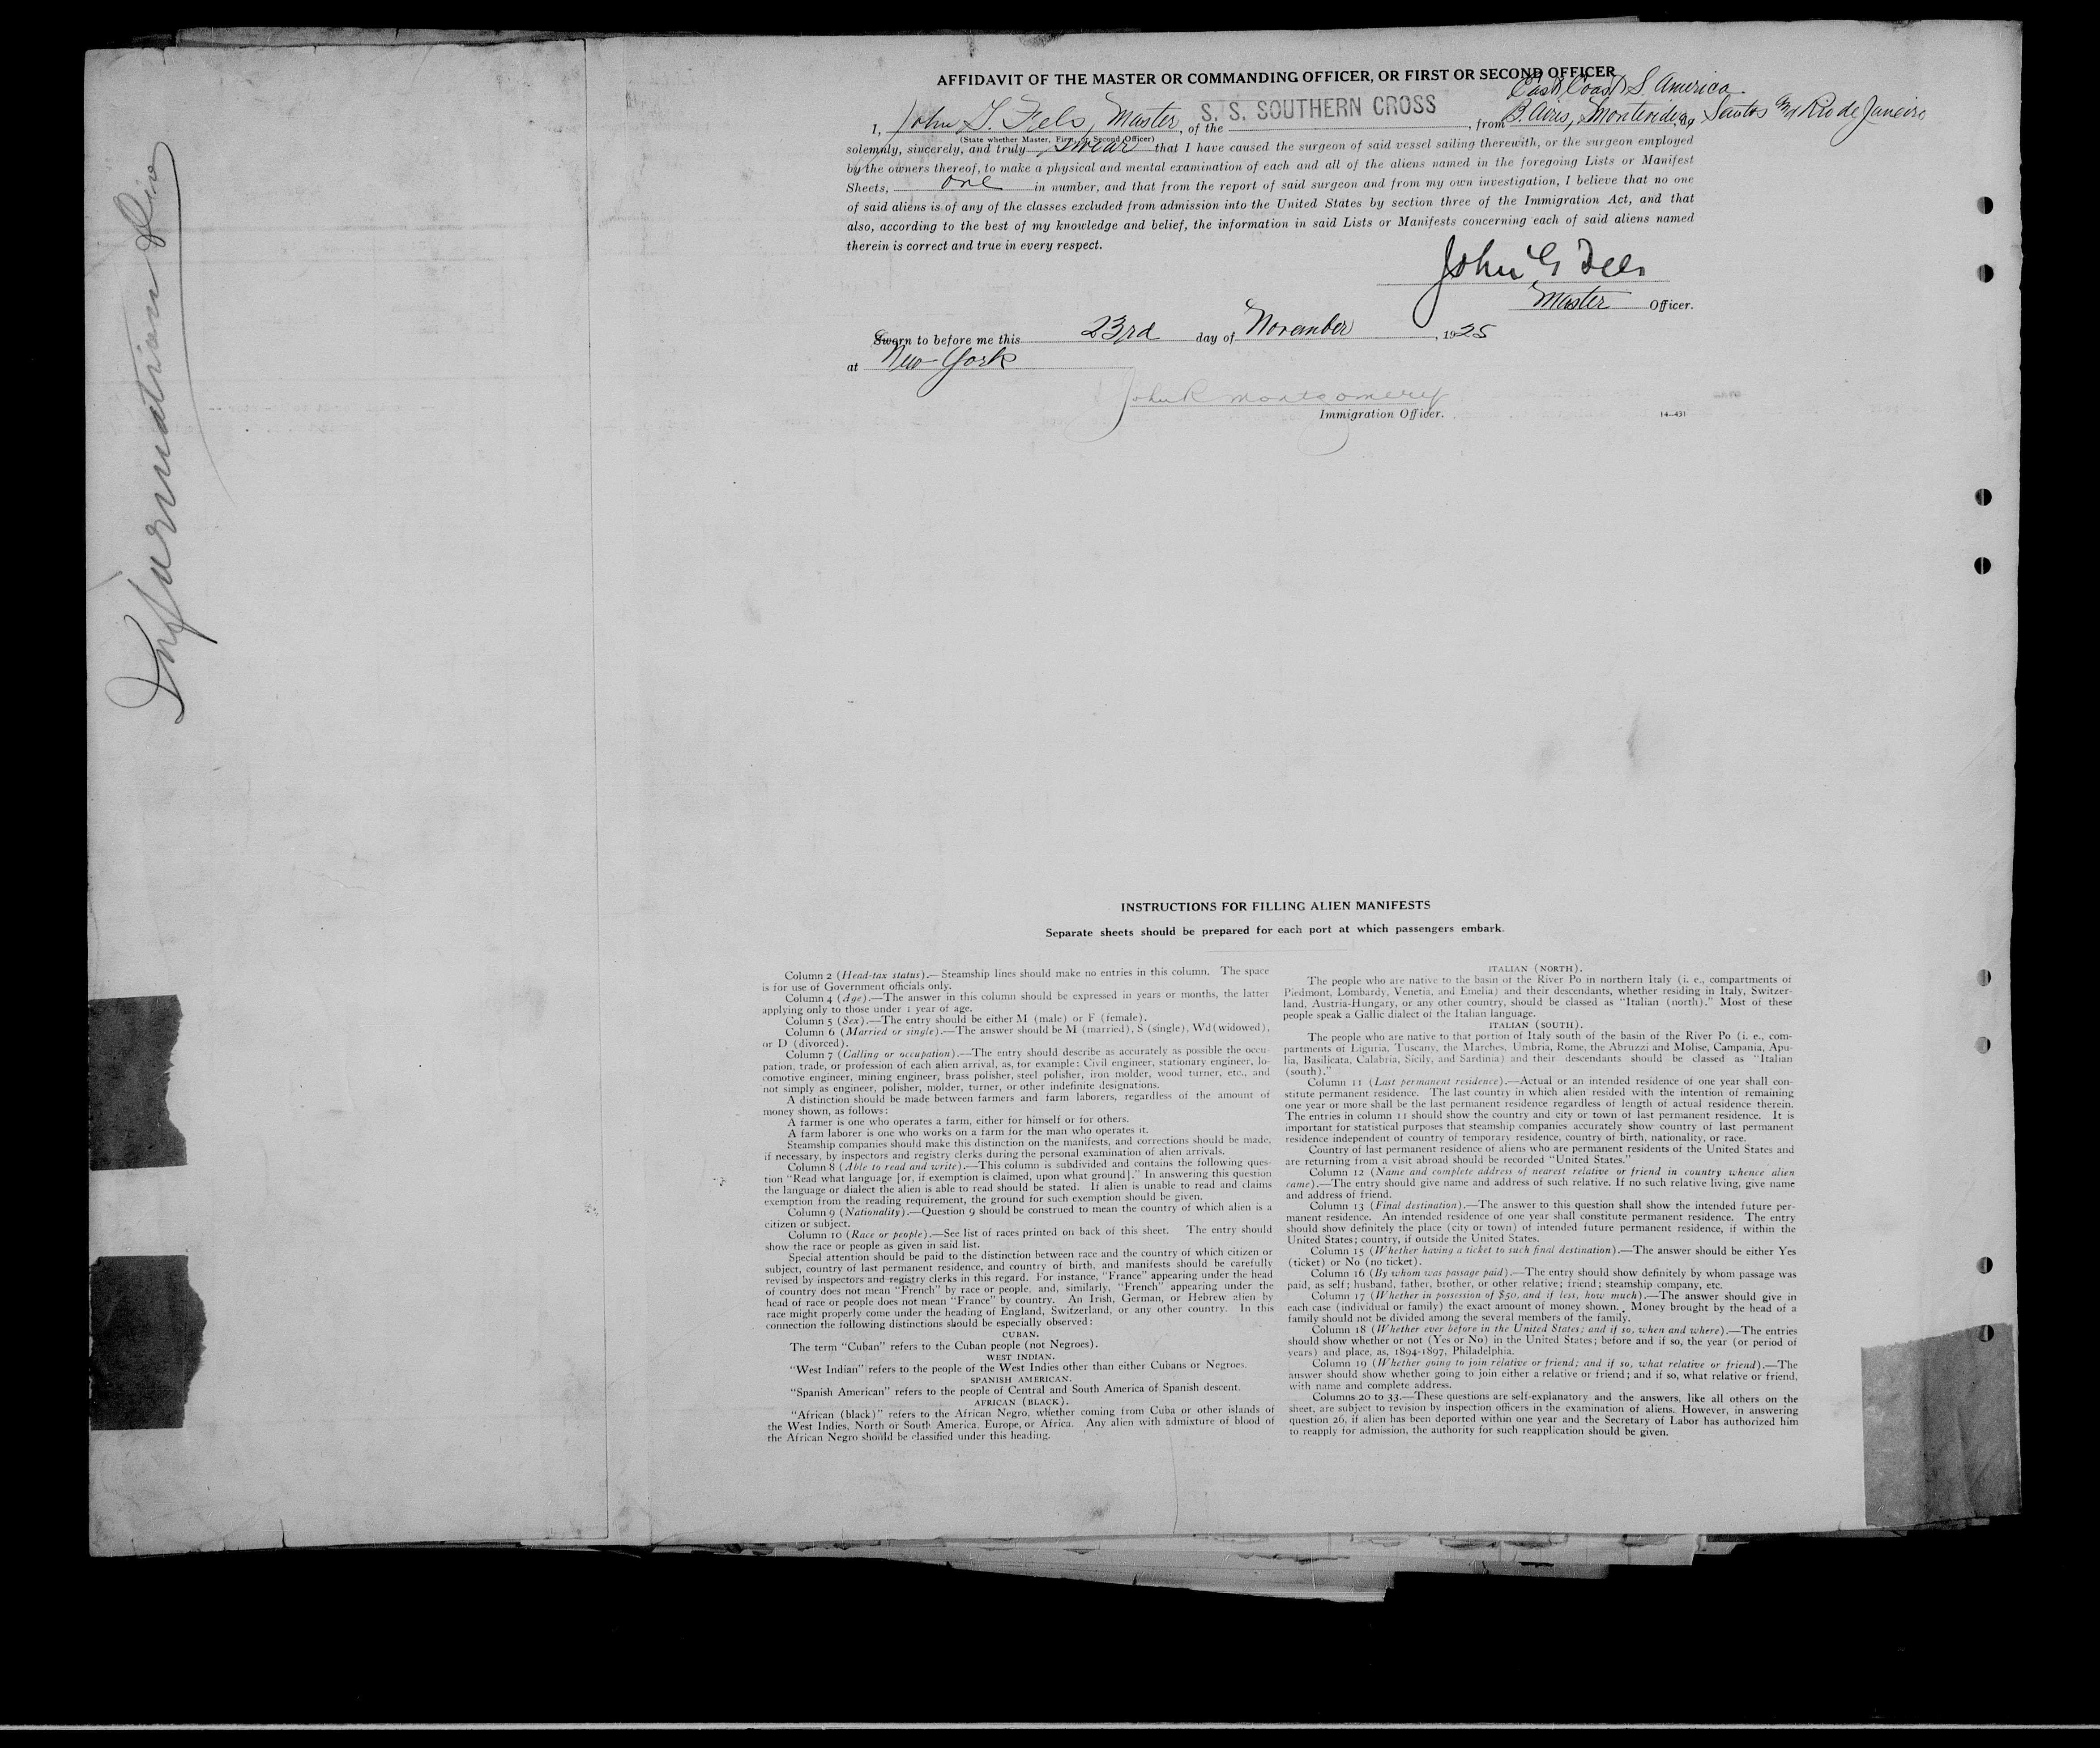 AFFIDAVIT OF THE MASTER OR COMMANDING OFFICER, OR FIRST OR SECOND OFFICER
East Coast S. America
I, John G. Fels, Master, of the S. S. SOUTHERN CROSS, from B. Aires, Montevideo, Santos and Rio de Janeiro
(State whether Master, First, or Second Officer)
solemnly, sincerely, and truly swear that I have caused the surgeon of said vessel sailing therewith, or the surgeon employed
by the owners thereof, to make a physical and mental examination of each and all of the aliens named in the foregoing Lists or Manifest
Sheets, one in number, and that from the report of said surgeon and from my own investigation, I believe that no one
of said aliens is of any of the classes excluded from admission into the United States by section three of the Immigration Act, and that
also, according to the best of my knowledge and belief, the information in said Lists or Manifests concerning each of said aliens named
therein is correct and true in every respect.
John G Fels
Master Officer.
Sworn to before me this 23rd day of November, 1925
at New York
John R Montgomery
Immigration Officer.
14-431
Information
INSTRUCTIONS FOR FILLING ALIEN MANIFESTS
Separate sheets should be prepared for each port at which passengers embark.
Column 2 (Head-tax status).—Steamship lines should make no entries in this column. The space
is for use of Government officials only.
Column 4 (Age).—The answer in this column should be expressed in years or months, the latter
applying only to those under 1 year of age.
Column 5 (Sex).—The entry should be either M (male) or F (female).
Column 6 (Married or single).—The answer should be M (married), S (single), Wd(widowed),
or D (divorced).
Column 7 (Calling or occupation).—The entry should describe as accurately as possible the occu-
pation, trade, or profession of each alien arrival, as, for example: Civil engineer, stationary engineer, lo-
comotive engineer, mining engineer, brass polisher, steel polisher, iron molder, wood turner, etc., and
not simply as engineer, polisher, molder, turner, or other indefinite designations.
A distinction should be made between farmers and farm laborers, regardless of the amount of
money shown, as follows:
A farmer is one who operates a farm, either for himself or for others.
A farm laborer is one who works on a farm for the man who operates it.
Steamship companies should make this distinction on the manifests, and corrections should be made,
if necessary, by inspectors and registry clerks during the personal examination of alien arrivals.
Column 8 (Able to read and write).—This column is subdivided and contains the following ques-
tion "Read what language [or, if exemption is claimed, upon what ground]." In answering this question
the language or dialect the alien is able to read should be stated. If alien is unable to read and claims
exemption from the reading requirement, the ground for such exemption should be given.
Column 9 (Nationality).—Question 9 should be construed to mean the country of which alien is a
citizen or subject.
Column 10 (Race or people).—See list of races printed on back of this sheet. The entry should
show the race or people as given in said list.
Special attention should be paid to the distinction between race and the country of which citizen or
subject, country of last permanent residence, and country of birth, and manifests should be carefully
revised by inspectors and registry clerks in this regard. For instance, "France" appearing under the head
of country does not mean "French" by race or people, and, similarly, "French" appearing under the
head of race or people does not mean "France" by country. An Irish, German, or Hebrew alien by
race might properly come under the heading of England, Switzerland, or any other country. In this
connection the following distinctions should be especially observed:
CUBAN.
The term "Cuban" refers to the Cuban people (not Negroes).
WEST INDIAN.
"West Indian" refers to the people of the West Indies other than either Cubans or Negroes.
SPANISH AMERICAN.
"Spanish American" refers to the people of Central and South America of Spanish descent.
AFRICAN (BLACK).
"African (black)" refers to the African Negro, whether coming from Cuba or other islands of
the West Indies, North or South America, Europe, or Africa. Any alien with admixture of blood of
the African Negro should be classified under this heading.
ITALIAN (NORTH).
The people who are native to the basin of the River Po in northern Italy (i. e., compartments of
Piedmont, Lombardy, Venetia, and Emelia) and their descendants, whether residing in Italy, Switzer-
land, Austria-Hungary, or any other country, should be classed as "Italian (north)." Most of these
people speak a Gallic dialect of the Italian language.
ITALIAN (SOUTH).
The people who are native to that portion of Italy south of the basin of the River Po (i. e., com-
partments of Liguria, Tuscany, the Marches, Umbria, Rome, the Abruzzi and Molise, Campania, Apu-
lia, Basilicata, Calabria, Sicily, and Sardinia) and their descendants should be classed as "Italian
(south)."
Column 11 (Last permanent residence).—Actual or an intended residence of one year shall con-
stitute permanent residence. The last country in which alien resided with the intention of remaining
one year or more shall be the last permanent residence regardless of length of actual residence therein.
The entries in column 11 should show the country and city or town of last permanent residence. It is
important for statistical purposes that steamship companies accurately show country of last permanent
residence independent of country of temporary residence, country of birth, nationality, or race.
Country of last permanent residence of aliens who are permanent residents of the United States and
are returning from a visit abroad should be recorded "United States."
Column 12 (Name and complete address of nearest relative or friend in country whence alien
came).—The entry should give name and address of such relative. If no such relative living, give name
and address of friend.
Column 13 (Final destination).—The answer to this question shall show the intended future per-
manent residence. An intended residence of one year shall constitute permanent residence. The entry
should show definitely the place (city or town) of intended future permanent residence, if within the
United States; country, if outside the United States.
Column 15 (Whether having a ticket to such final destination).—The answer should be either Yes
(ticket) or No (no ticket).
Column 16 (By whom was passage paid).—The entry should show definitely by whom passage was
paid, as self; husband, father, brother, or other relative; friend; steamship company, etc.
Column 17 (Whether in possession of $50, and if less, how much).—The answer should give in
each case (individual or family) the exact amount of money shown. Money brought by the head of a
family should not be divided among the several members of the family.
Column 18 (Whether ever before in the United States; and if so, when and where).—The entries
should show whether or not (Yes or No) in the United States; before and if so, the year (or period of
years) and place, as, 1894-1897, Philadelphia.
Column 19 (Whether going to join relative or friend; and if so, what relative or friend).—The
answer should show whether going to join either a relative or friend; and if so, what relative or friend,
with name and complete address.
Columns 20 to 33.—These questions are self-explanatory and the answers, like all others on the
sheet, are subject to revision by inspection officers in the examination of aliens. However, in answering
question 26, if alien has been deported within one year and the Secretary of Labor has authorized him
to reapply for admission, the authority for such reapplication should be given.